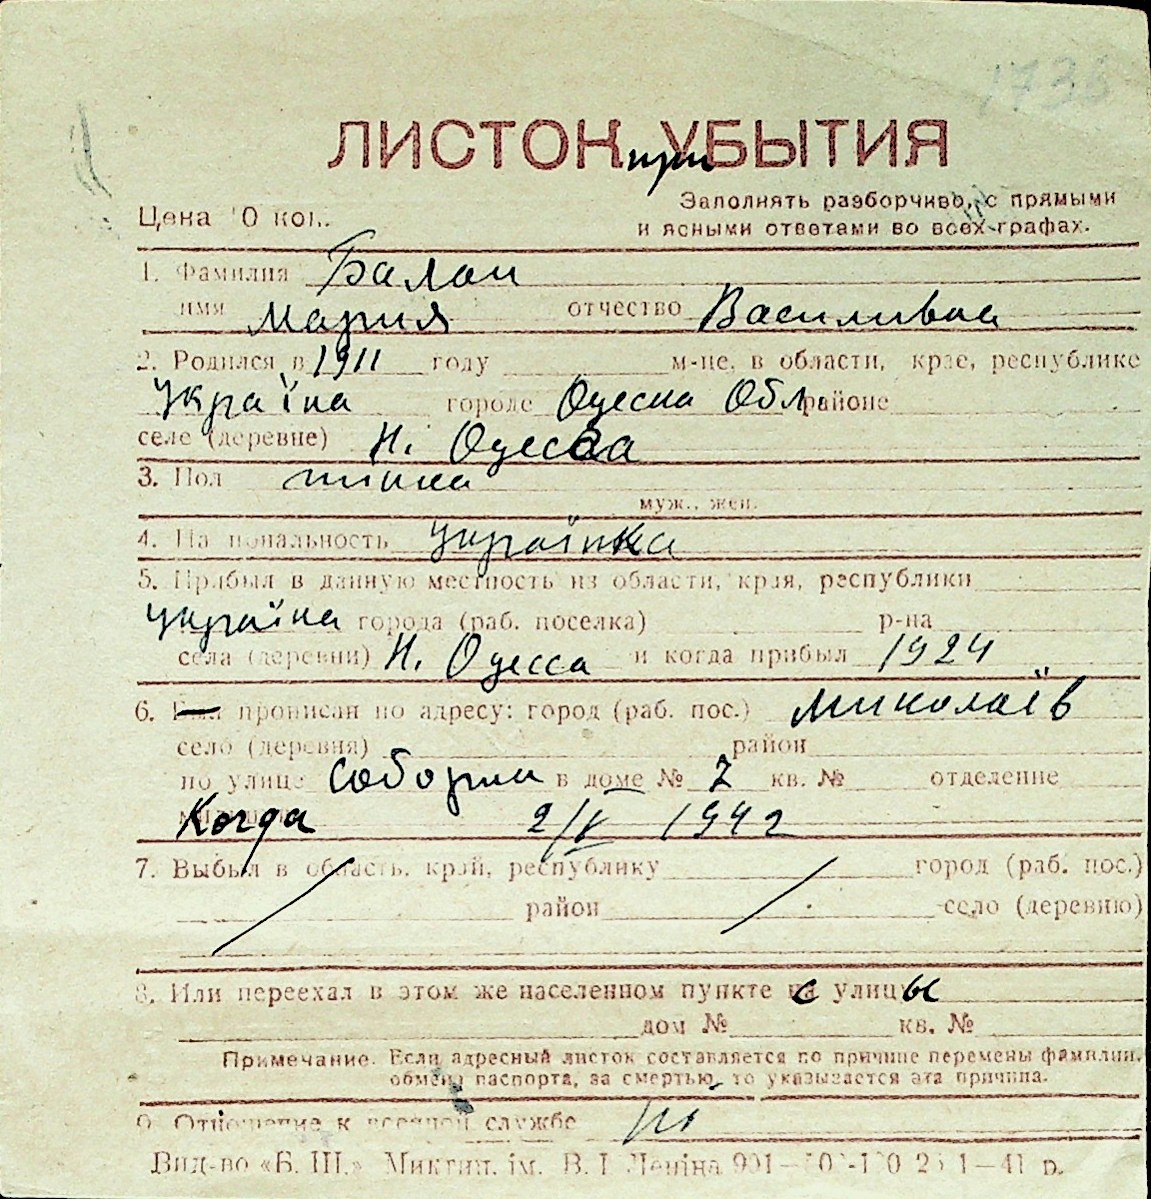 1736
ЛИСТОК УБЫТИЯ
при
Цена 10 коп.
Заполнять разборчиво, с прямыми
и ясными ответами во всех графах.
1. Фамилия Балан
имя Мария отчество Василивна
2. Родился в 1911 году м-це, в области, крае, республике
Україна городе Одеська Обл. районе
селе (деревне) Н. Одесса
3. Пол жинка
муж., жен.
4. Национальность українка
5. Прибыл в данную местность из области, края, республики
Україна города (раб. поселка) р-на
села (деревни) Н. Одесса и когда прибыл 1924
6. Был прописан по адресу: город (раб. пос.) Миколаїв
село (деревня) район
по улице Соборна в доме № 7 кв. № отделение
милиции Когда 2/IV 1942
7. Выбыл в область, край, республику город (раб. пос.)
район село (деревню)
8. Или переехал в этом же населенном пункте с улицы
дом № кв. №
Примечание. Если адресный листок составляется по причине перемены фамилии,
обмена паспорта, за смертью, то указывается эта причина.
9. Отношение к военной службе ні
Вид-во «Б. Ш.» Микгип. ім. В. І. Леніна 901